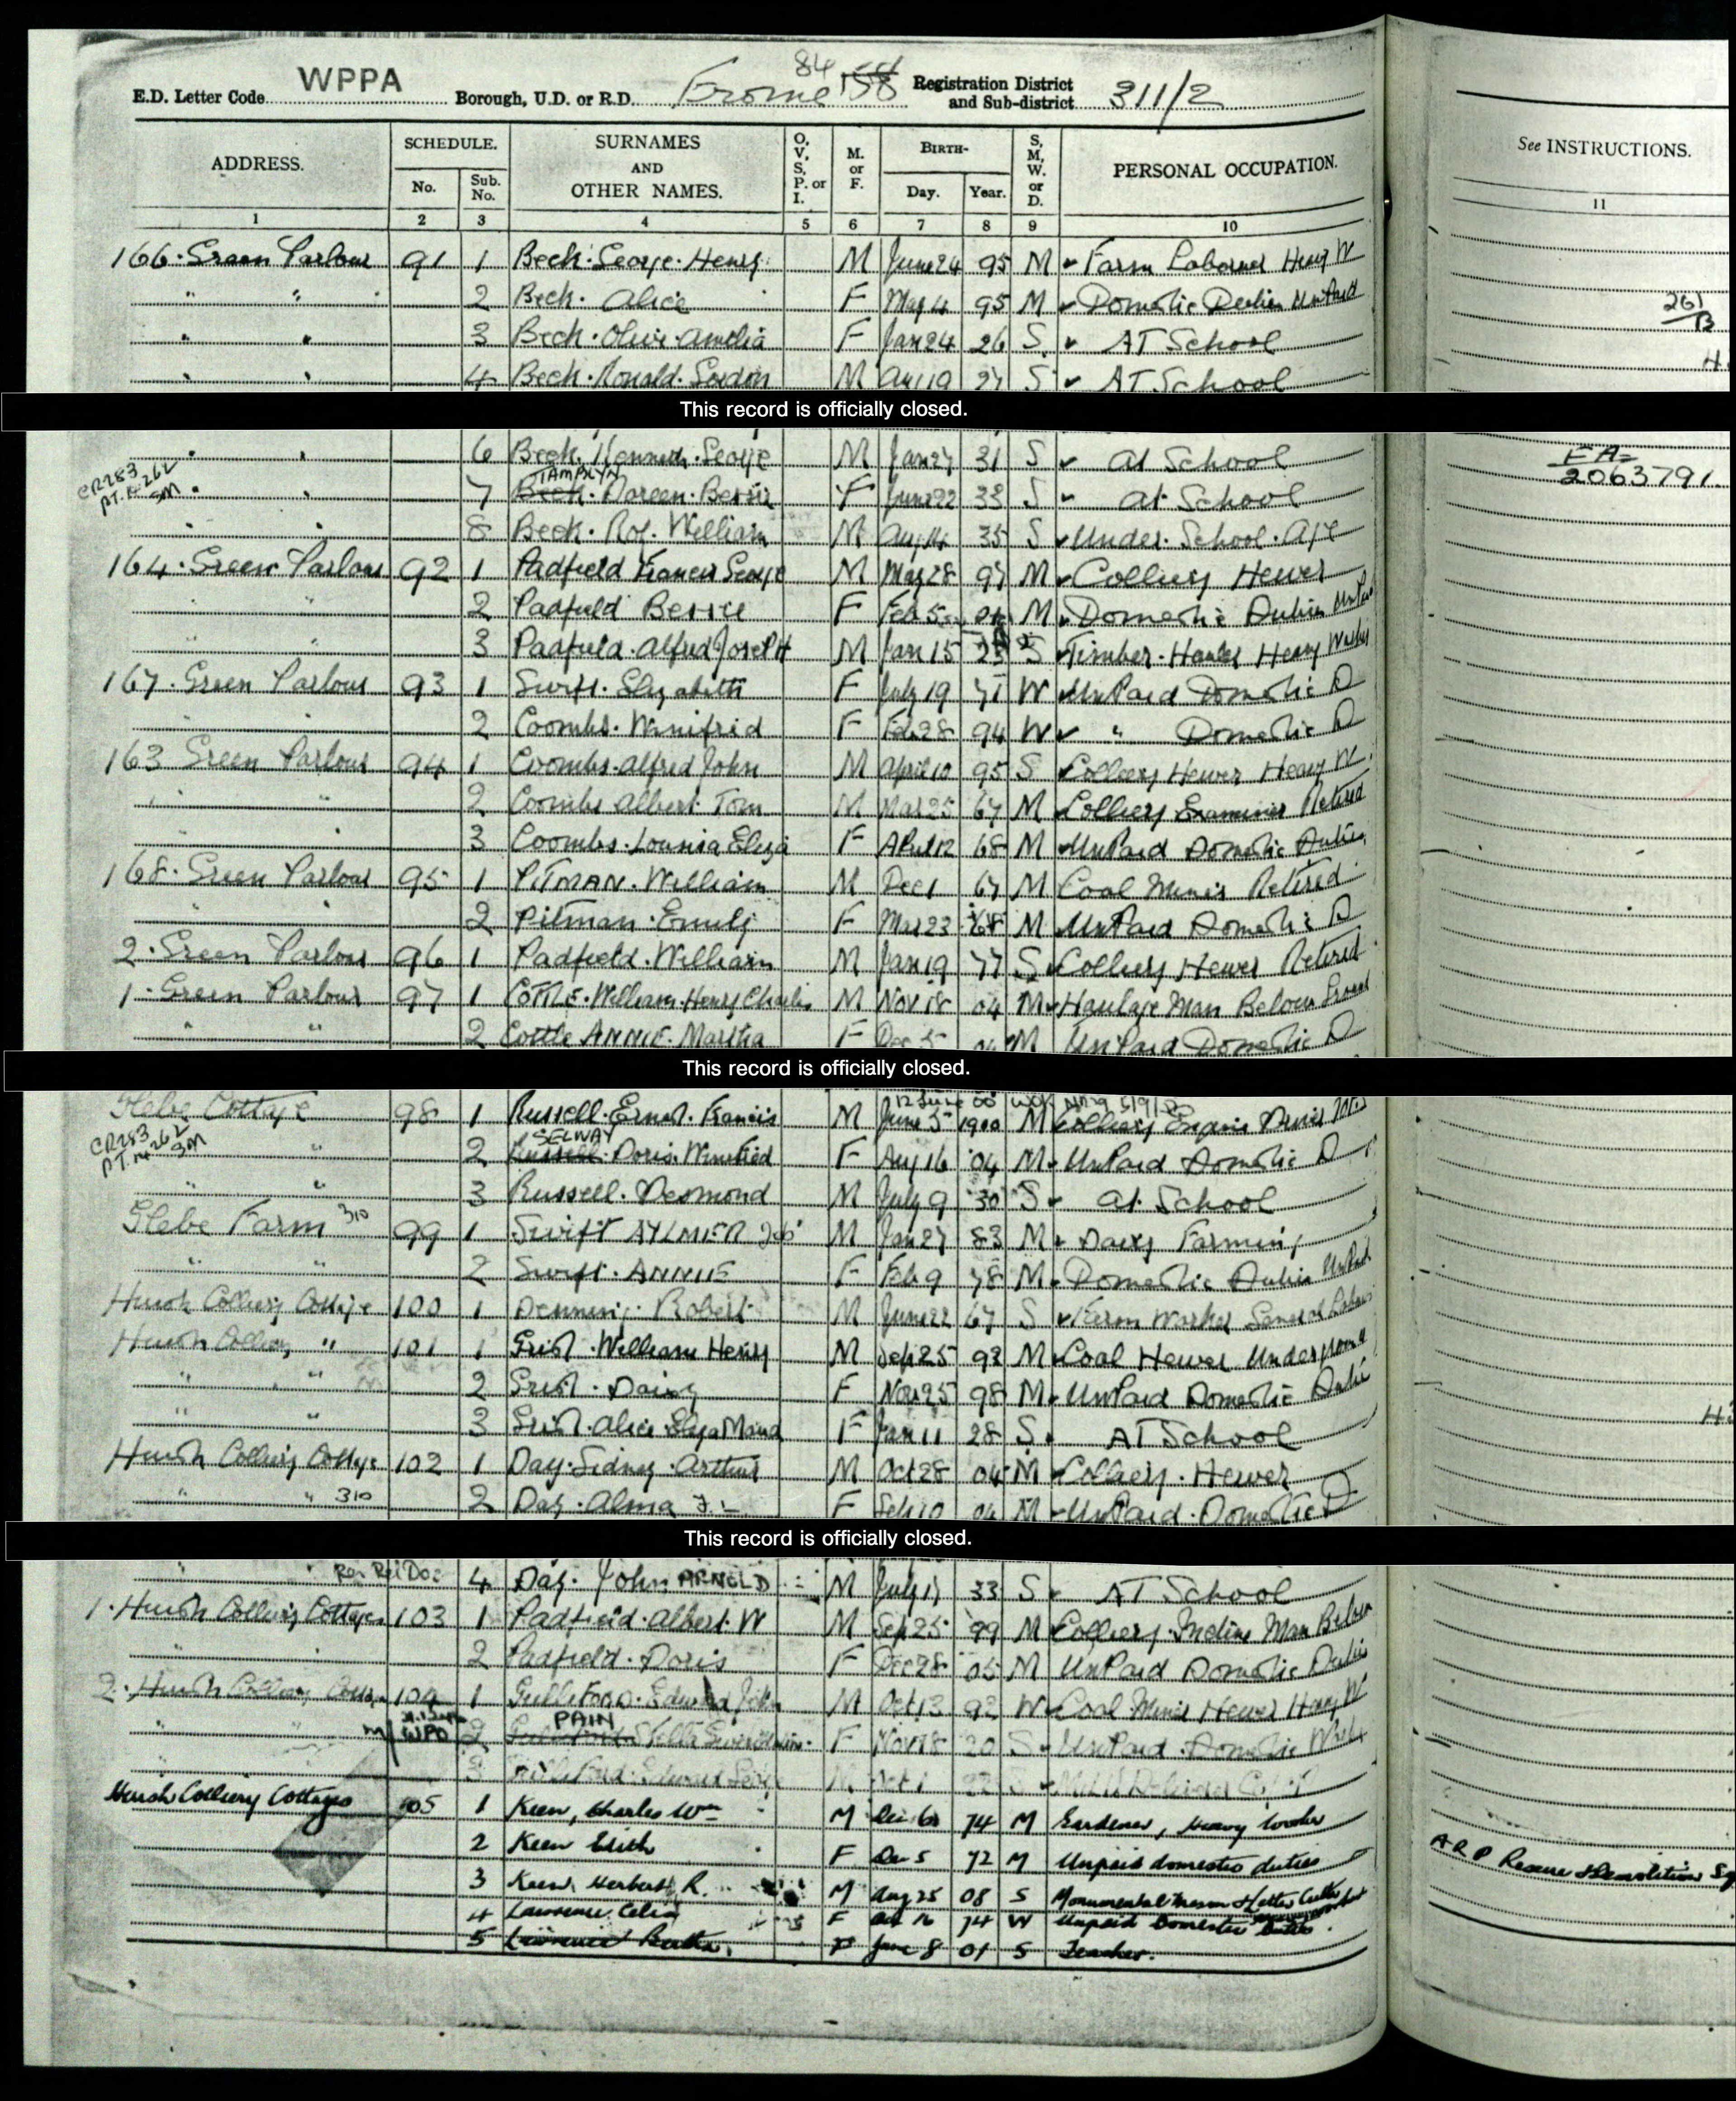 E.D. Letter Code WPPA Borough, U.D. or R.D. Frome 84 158 Registration District and Sub-district 311/2
ADDRESS. SCHEDULE. No. Sub. No. SURNAMES AND OTHER NAMES. O, V, S, P. or I. M. or F. BIRTH- Day. Year. S, M, W. or D. PERSONAL OCCUPATION. See INSTRUCTIONS.
1 2 3 4 5 6 7 8 9 10 11
166 Green Parlour 91 1 Beck George Henry M June 24 95 M Farm Laborer Heavy W
" " 2 Beck Alice F May 4 95 M Domestic Duties UnPaid
" " 3 Beck Olive Amelia F Jan 24 26 S AT School
" " 4 Beck Ronald Gordon M 27 S AT School
261/B
This record is officially closed.
" " 6 Beck Kenneth George M Jan 27 31 S at School
CR283 PT. 262 SM
TAMBLYN
" " 7 Beck Doreen Bessie F June 22 33 S at School
EA= 2063791
8 Beck Roy William M Aug 14 35 S Under School Age
164 Green Parlour 92 1 Padfield Francis George M May 28 97 M Colliery Hewer
" " 2 Padfield Bessie F Feb 5 M Domestic Duties UnPaid
" " 3 Padfield Alfred Joseph M Jan 15 23 S Timber Hauler Heavy Worker
167 Green Parlour 93 1 Swift Elizabeth F July 19 71 W UnPaid Domestic D
" 2 Coombs Winifrid F Feb 28 94 W " Domestic D
163 Green Parlour 94 1 Coombs Alfred John M April 10 95 S Colliery Hewer Heavy W
" " 2 Coombs Albert Tom M Mar 25 67 M Colliery Examiner Retired
" " 3 Coombs Lousia Eliza F April 12 68 M UnPaid Domestic Duties
168 Green Parlour 95 1 PITMAN William M Dec 1 67 M Coal Miner Retired
" " 2 Pitman Emily F Mar 23 68 M UnPaid Domestic D
2 Green Parlour 96 1 Padfield William M Jan 19 77 S Colliery Hewer Retired
1 Green Parlour 97 1 Cottle William Henry Charles M Nov 18 04 M Haulage Man Below Ground
" " 2 Cottle ANNIE Martha F Dec 5 M UnPaid Domestic D
This record is officially closed.
Glebe Cottage 98 1 Russell Ernest Francis M June 5 1900 M Colliery Engine
CR283 PT. 262 SM
SELWAY
" 2 Russell Doris Winifred F Aug 16 04 M UnPaid Domestic D
" " 3 Russell Desmond M July 9 30 S at School
Glebe Farm 310 99 1 Swift AYLMER Job M Jan 27 83 M Dairy Farming
" " 2 Swift ANNIE F Feb 9 78 M Domestic Duties UnPaid
Huish Colliery Cottage 100 1 Denning Robert M June 22 67 S Farm Worker General Labour
Huish Colliery " 101 1 Grist William Henry M Sep 25 92 M Coal Hewer Underground
" " 2 Grist Daisy F Nov 25 98 M UnPaid Domestic Duties
" " 3 Grist Alice Eliza Maud F Jan 11 28 S AT School
Huish Colliery Cottage 102 1 Day Sidney Arthur M Oct 28 04 M Colliery Hewer
" " 310 2 Day Alma F Sep 10 04 M UnPaid Domestic D
This record is officially closed.
" " 4 Day John ARNOLD M July 17 33 S AT School
1 Huish Colliery Cottages 103 1 Padfield Albert W M Sep 25 99 M Colliery Incline Man Below
" " 2 Padfield Doris F Dec 28 05 M UnPaid Domestic Duties
2 Huish Colliery Cottage 104 1 Gulliford Edward John M Oct 13 92 W Coal Miner Hewer Heavy W
PAIN
" " WPD 2 F Nov 18 20 S UnPaid Domestic Work
3 Gulliford Edward George M Oct 1 22 S
Huish Colliery Cottages 105 1 Keen, Charles Wm M Dec 6 74 M Gardener, Heavy Worker
2 Keen Edith F Dec 5 72 M Unpaid domestic duties
3 Keen Herbert R. M Aug 25 08 S Monumental Mason & Letter Cutter
A R P Rescue Demolition
4 Lawrence Celia F Oct 16 74 W Unpaid Domestic Duties
5 Lawrence F June 8 01 S Teacher.